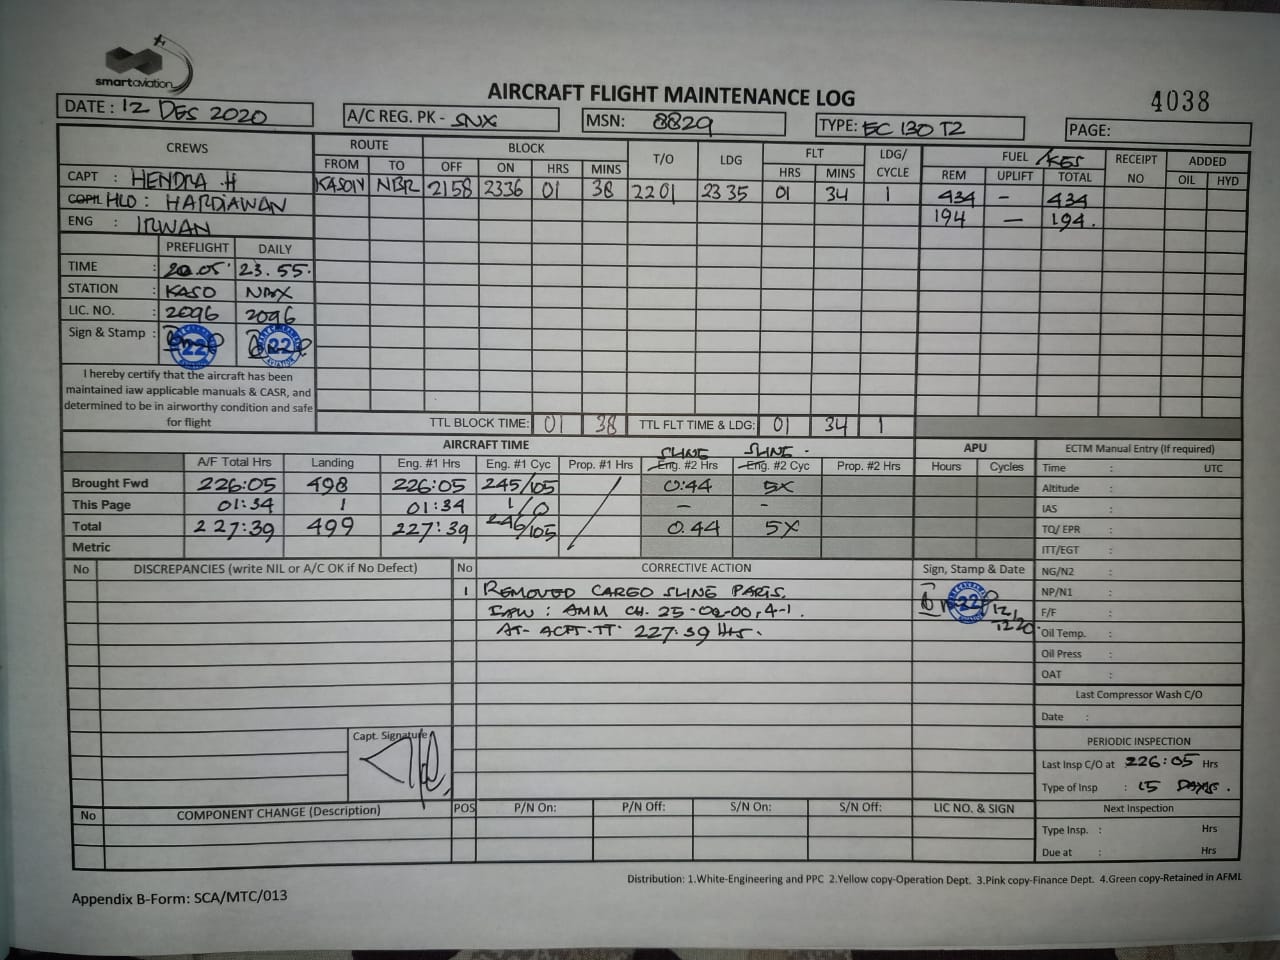 smartaviation
AIRCRAFT FLIGHT MAINTENANCE LOG
4038
DATE : 12 DES 2020
A/C REG. PK - SNX
MSN: 8829
TYPE: EC 130 T2
PAGE:
CREWS ROUTE BLOCK T/O LDG FLT LDG/ CYCLE FUEL /KGS RECEIPT NO ADDED
FROM TO OFF ON HRS MINS HRS MINS REM UPLIFT TOTAL OIL HYD
CAPT : HENDRA .H KASON NBR 2158 2336 01 38 2201 2335 01 34 1 434 - 434
COPIL HLO : HARDIAWAN 194 - 194.
ENG : IRWAN
PREFLIGHT DAILY
TIME : 20.05 23.55.
STATION : KASO NBX
LIC. NO. : 2096 2096
Sign & Stamp : 22 22
I hereby certify that the aircraft has been
maintained iaw applicable manuals & CASR, and
determined to be in airworthy condition and safe
for flight
TTL BLOCK TIME: 01 38 TTL FLT TIME & LDG: 01 34 1
AIRCRAFT TIME SLING SLING. APU ECTM Manual Entry (If required)
A/F Total Hrs Landing Eng. #1 Hrs Eng. #1 Cyc Prop. #1 Hrs Eng. #2 Hrs Eng. #2 Cyc Prop. #2 Hrs Hours Cycles Time : UTC
Brought Fwd 226:05 498 226:05 245/105 0:44 5X Altitude :
This Page 01:34 1 01:34 1/0 - - IAS :
Total 227:39 499 227:39 246/105 0.44 5X TQ/ EPR :
Metric ITT/EGT :
No DISCREPANCIES (write NIL or A/C OK if No Defect) No CORRECTIVE ACTION Sign, Stamp & Date NG/N2 :
1 REMOVED CARGO SLING PARTS. 22 NP/N1 :
IAW : AMM CH. 25-02-00, 4-1. 12/12 20 F/F :
AT- ACFT-TT 227:39 Hrs. Oil Temp. :
Oil Press :
OAT :
Last Compressor Wash C/O
Date :
Capt. Signature
PERIODIC INSPECTION
Last Insp C/O at 226:05 Hrs
Type of Insp : 15 DAYS.
No COMPONENT CHANGE (Description) POS P/N On: P/N Off: S/N On: S/N Off: LIC NO. & SIGN Next Inspection
Type Insp. : Hrs
Due at : Hrs
Distribution: 1.White-Engineering and PPC 2.Yellow copy-Operation Dept. 3.Pink copy-Finance Dept. 4.Green copy-Retained in AFML
Appendix B-Form: SCA/MTC/013